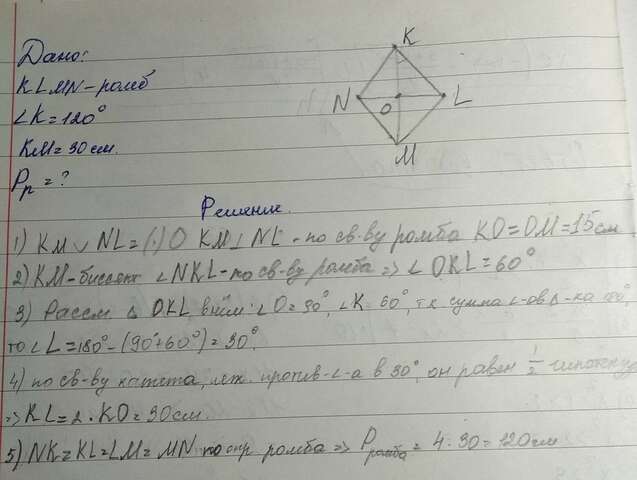 Дано:
KLMN - ромб
∠K = 120°
KM = 30 см.
Pр = ?
K
N
O
L
M
Решение.
1) KM ∨ NL = (·) O KM ⊥ NL - по св-ву ромба KO = OM = 15 см
2) KM - биссект ∠NKL - по св-ву ромба => ∠OKL = 60°
3) Рассм △ OKL в нём: ∠O = 90°, ∠K = 60°, т.к сумма ∠-ов △-ка 180°,
то ∠L = 180° - (90° + 60°) = 30°.
4) по св-ву катета, леж. против ∠-а в 30°, он равен 1/2 гипотенузы
=> KL = 2 · KO = 30 см.
5) NK = KL = LM = MN по опр. ромба => Pромба = 4 · 30 = 120 см